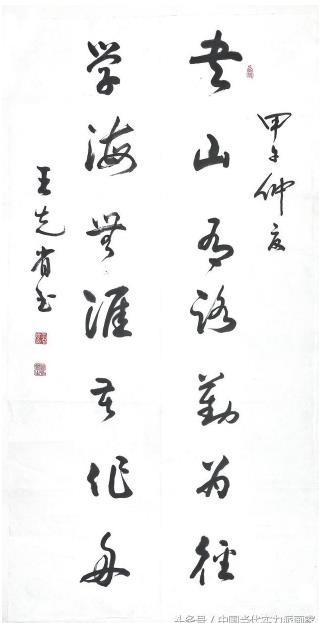 甲午仲夏
书山有路勤为径
学海无涯苦作舟
王先省书
头条号／中国当代实力派画家